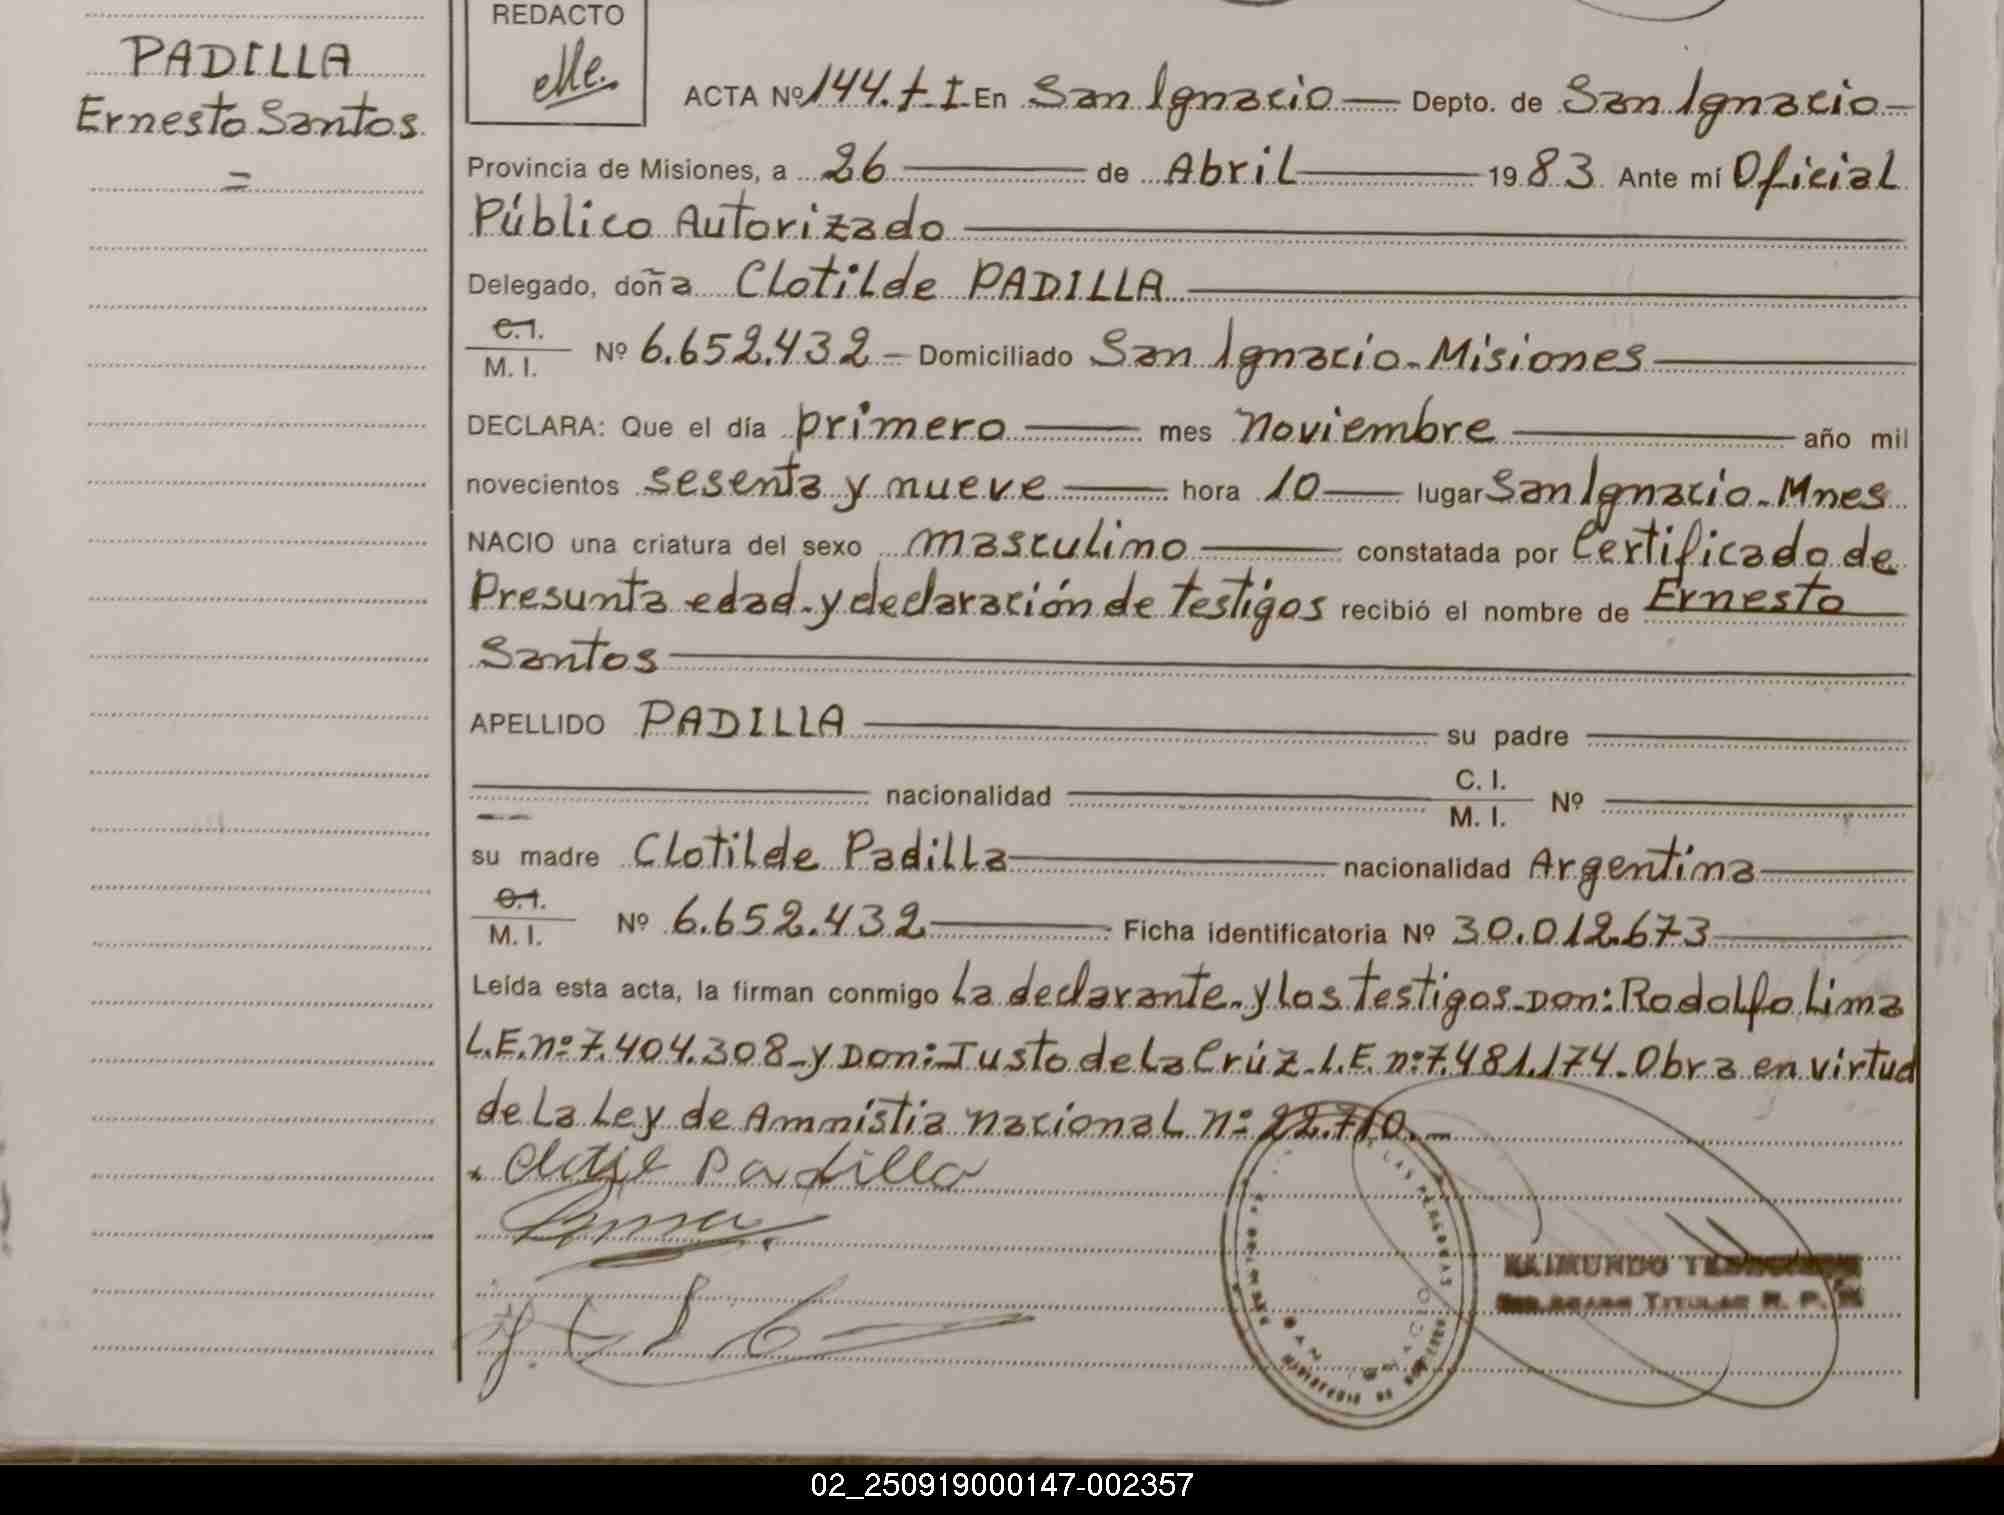 REDACTO
PADILLA
Ernesto Santos
=
ACTA Nº 144. t. I En San Ignacio Depto. de San Ignacio
Provincia de Misiones, a 26 de Abril 1983 Ante mí Oficial
Público Autorizado
Delegado, doña Clotilde PADILLA
C.I.
M. I. Nº 6.652.432 - Domiciliado San Ignacio - Misiones
DECLARA: Que el día primero mes noviembre año mil
novecientos sesenta y nueve hora 10 lugar San Ignacio - Mnes
NACIO una criatura del sexo masculino constatada por Certificado de
Presunta edad - y declaración de testigos recibió el nombre de Ernesto
Santos
APELLIDO PADILLA su padre
nacionalidad C. I. M. I. Nº
su madre Clotilde Padilla nacionalidad Argentina
C.I.
M. I. Nº 6.652.432 Ficha identificatoria Nº 30.012.673
Leída esta acta, la firman conmigo la declarante - y los testigos - Don: Rodolfo Lima
L.E. nº 7.404.308 - y Don: Justo de la Crúz - L.E. nº 7.481.174 - Obra en virtud
de la Ley de Ammistia nacional nº 22.710. -
Padilla
Lima
RAIMUNDO
TITULAR R. P.
02_250919000147-002357